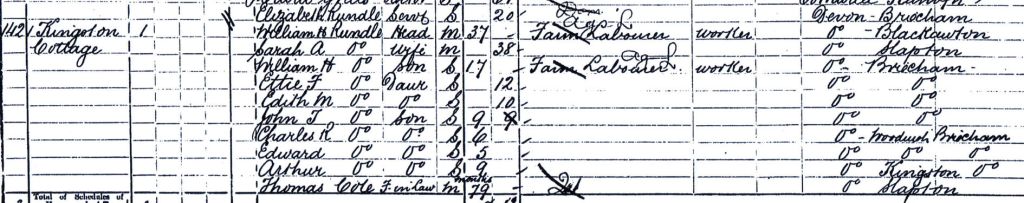 Elizabeth Rundle Serv S 20 Devon - Brixham
142 Kingston Cottage 1 William H Rundle Head M 37 Farm Labourer Ag L worker Do - Blackawton
Sarah A Do Wife M 38 Do Slapton
William H Do Son S 17 Farm Labourer Ag L worker Do Brixham
Effie F Do Daur S 12 Do Do
Edith M Do Do S 10 Do Do
John T Do Son S 9 Do Do
Charles R Do Do S 6 Do - Brixham
Edward Do Do S 5 Do Do Do
Arthur Do Do S 9 months Do Kingston Do
Thomas Cole F in law M 79 Do Slapton
Total of Schedules of